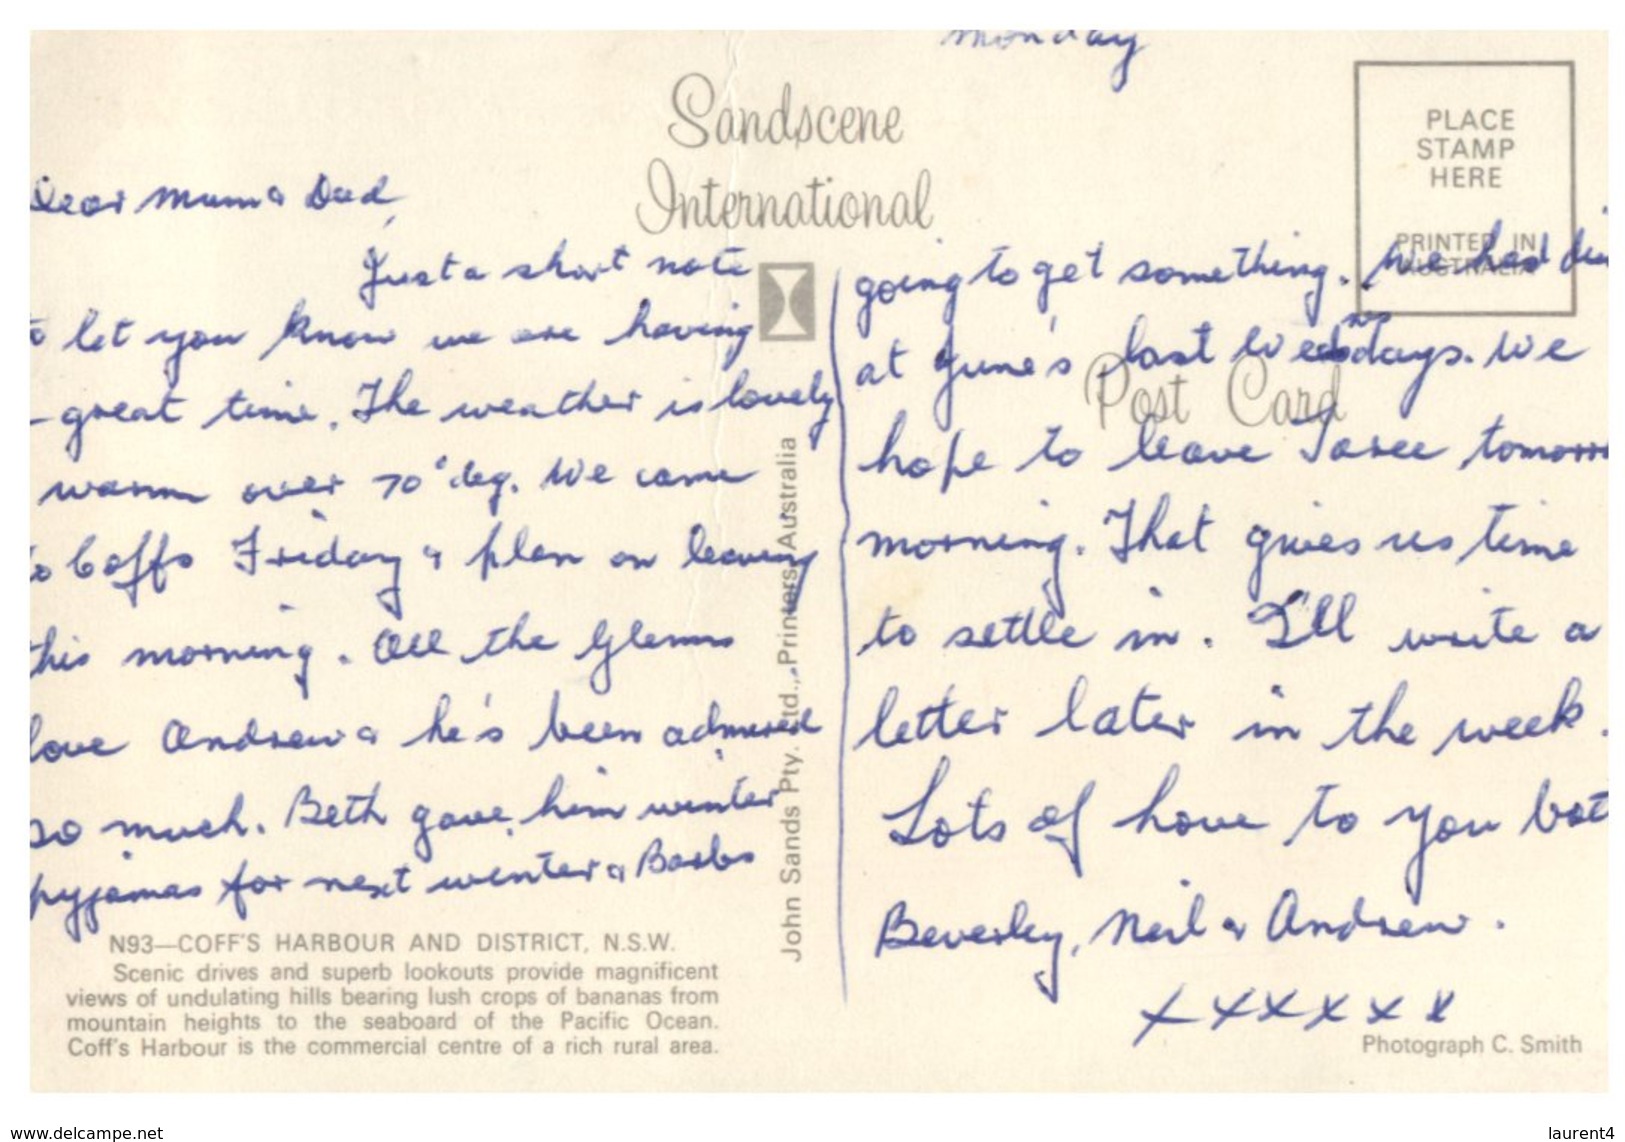 Monday
Sandscene
International
PLACE
STAMP
HERE
PRINTED IN
AUSTRALIA
Dear Mum & Dad,
Just a short note
to let you know we are having
great time. The weather is lovely
warm over 70° deg. We came
to Coffs Friday & plan on leaving
this morning. All the Glenns
love Andrew & he's been admired
so much. Beth gave him winter
pyjamas for next winter & Barbs
N93—COFF'S HARBOUR AND DISTRICT, N.S.W.
Scenic drives and superb lookouts provide magnificent
views of undulating hills bearing lush crops of bananas from
mountain heights to the seaboard of the Pacific Ocean.
Coff's Harbour is the commercial centre of a rich rural area.
John Sands Pty. Ltd., Printers, Australia
Post Card
going to get something. We had din
at June's last Wednsdays. We
hope to leave Taree tomorro
morning. That gives us time
to settle in. I'll write a
letter later in the week.
Lots of hove to you bot
Beverley, Neil & Andrew.
xxxxxx
Photograph C. Smith
www.delcampe.net
laurent4